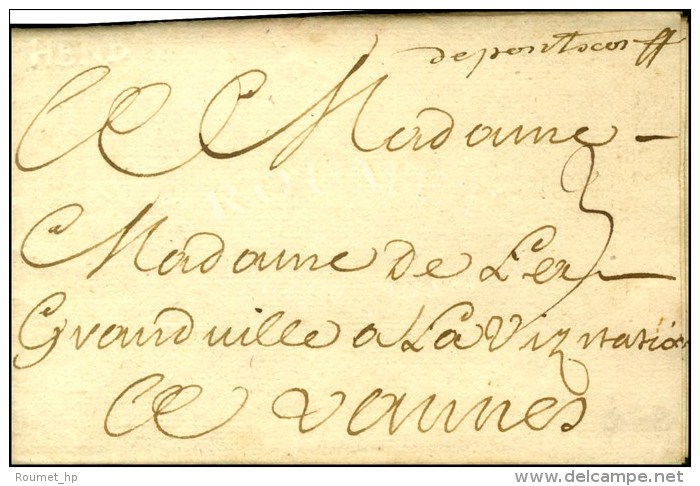 HEND
de pontscorff
A Madame
Madame de Ler
3
Grandville a La Viznation
A Vannes
ROUMET
Roumet_hp
delcampe.net